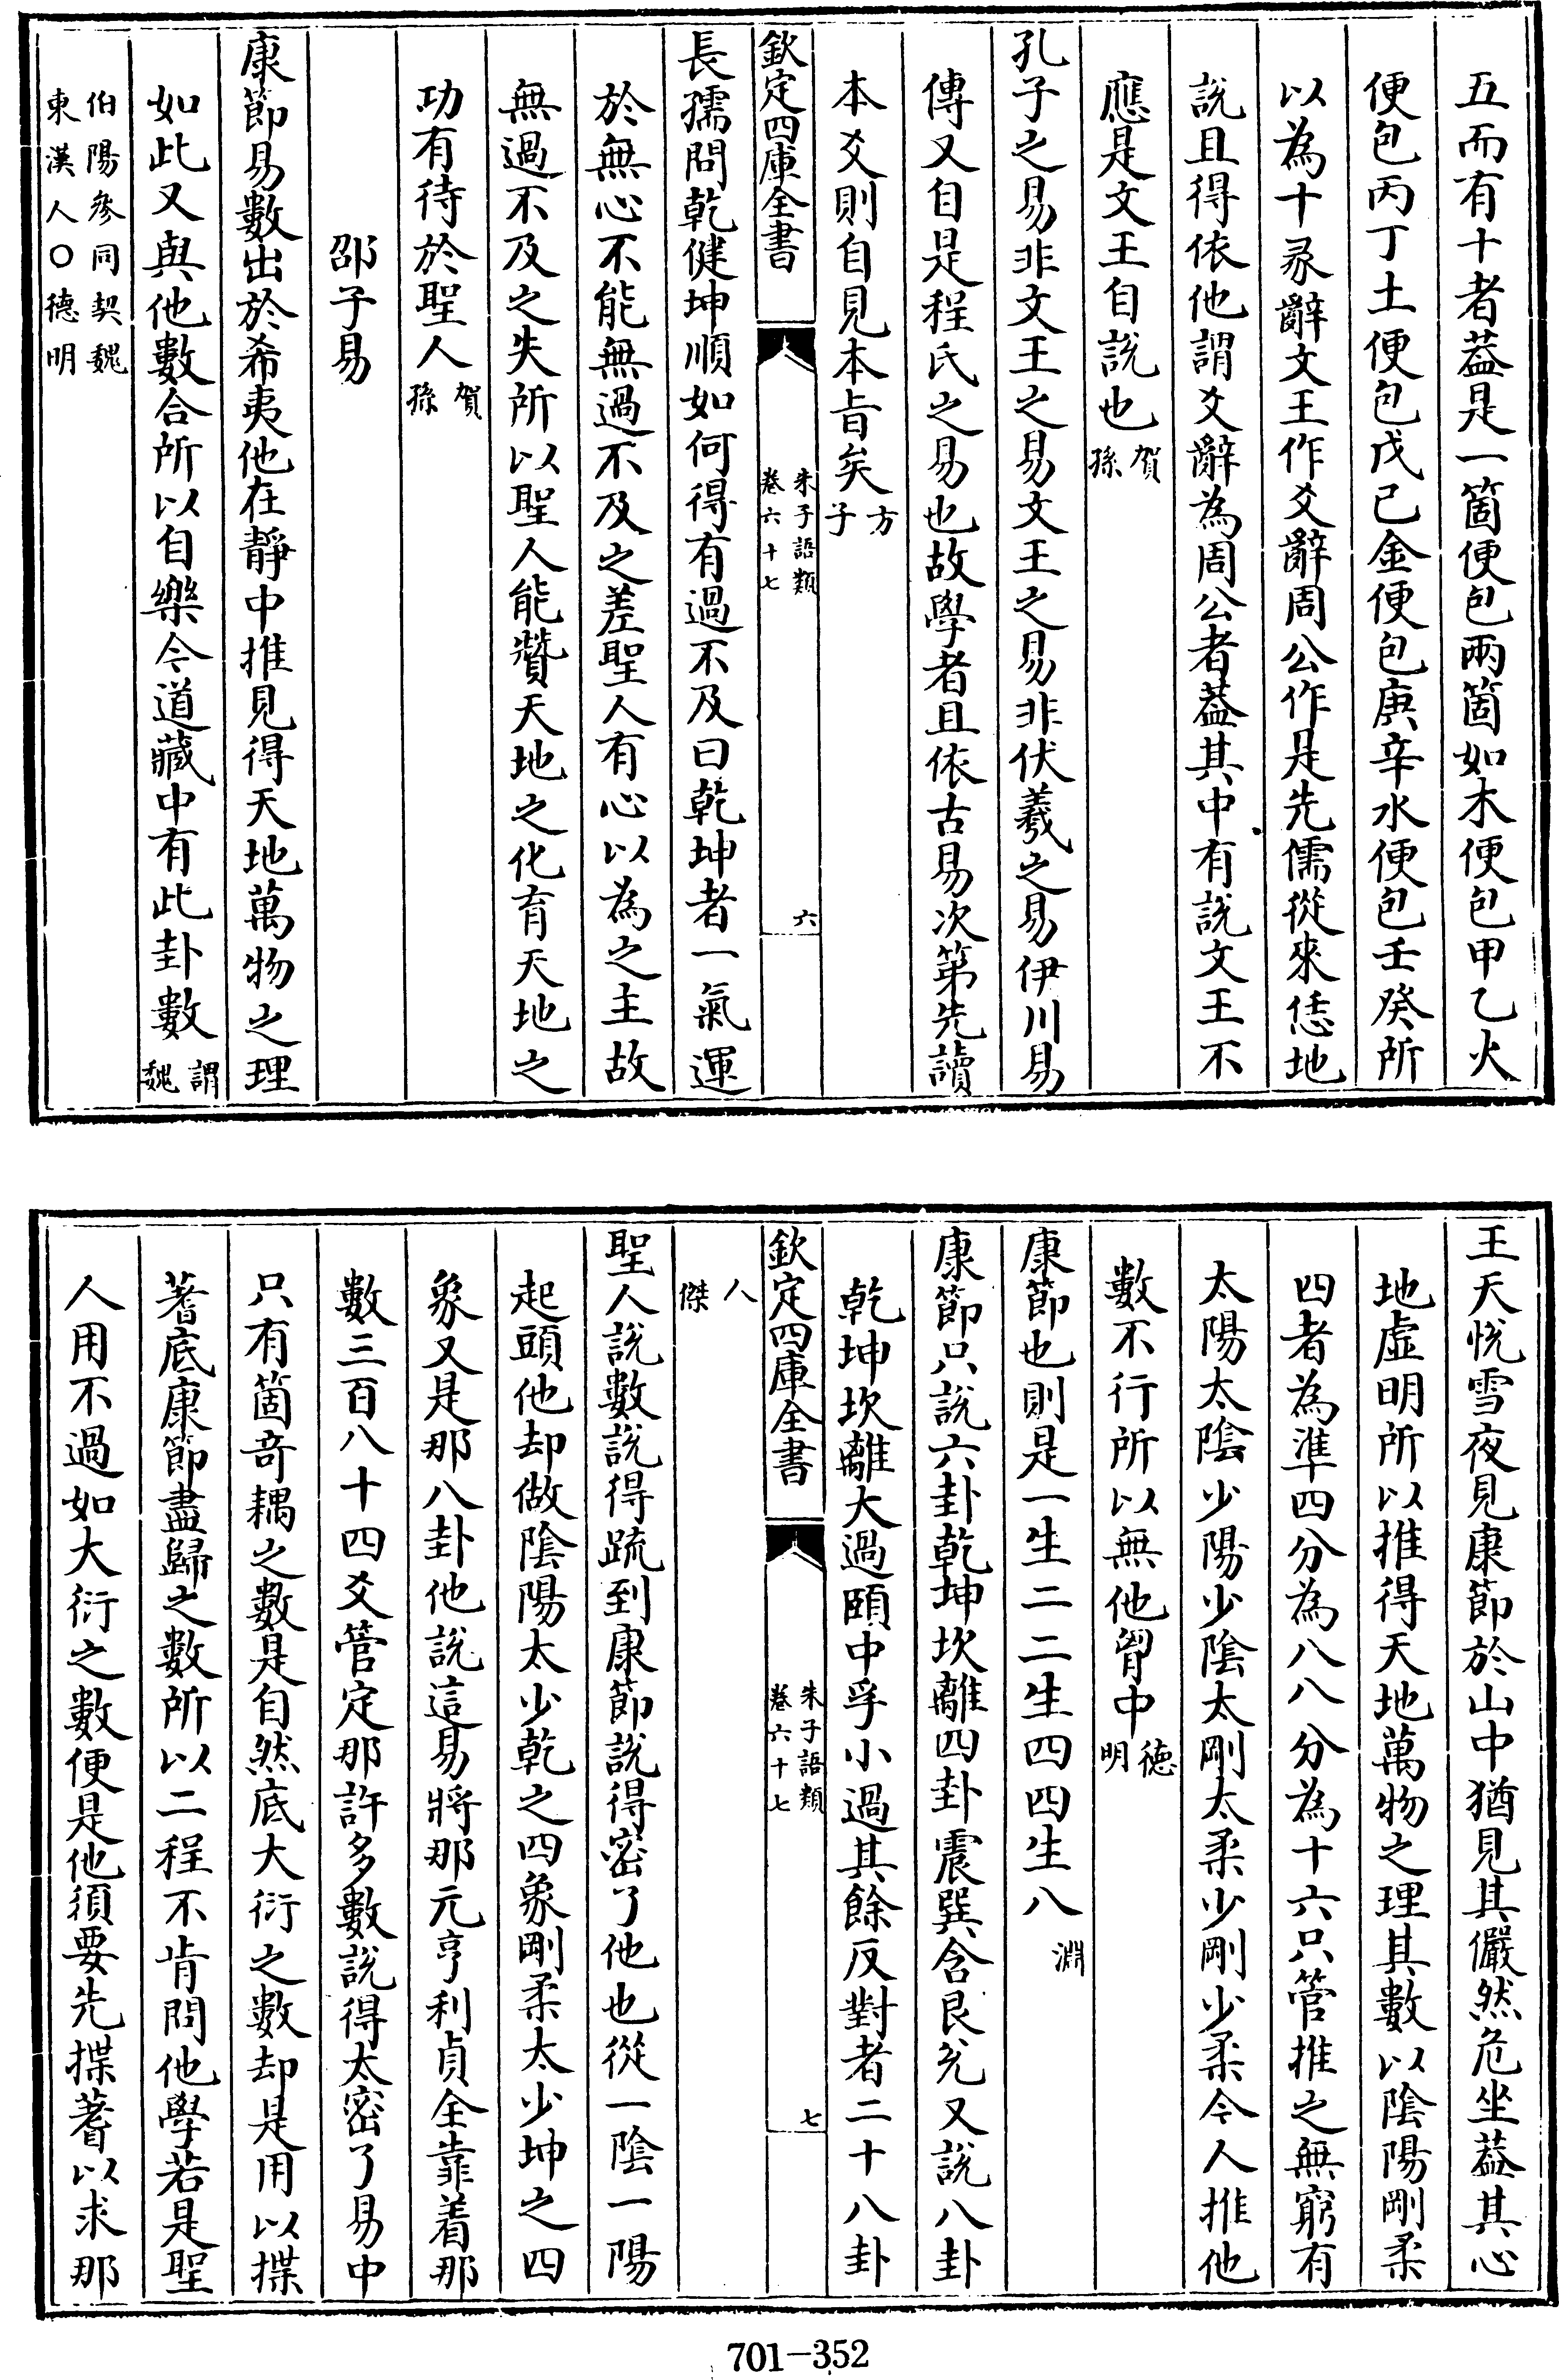 五而有十者葢是一箇便包兩箇如木便包甲乙火
便包丙丁土便包戊己金便包庚辛水便包壬癸所
以為十彖辭文王作爻辭周公作是先儒從來恁地
說且得依他謂爻辭為周公者葢其中有說文王不
應是文王自說也賀孫
孔子之易非文王之易文王之易非伏羲之易伊川易
傳又自是程氏之易也故學者且依古易次第先讀
本爻則自見本旨矣方子
欽定四庫全書 朱子語類 卷六十七 六
長孺問乾健坤順如何得有過不及曰乾坤者一氣運
於無心不能無過不及之差聖人有心以為之主故
無過不及之失所以聖人能贊天地之化育天地之
功有待於聖人賀孫
邵子易
康節易數出於希夷他在靜中推見得天地萬物之理
如此又與他數合所以自樂今道藏中有此卦數謂魏
伯陽參同契魏
東漢人○德明
王天悅雪夜見康節於山中猶見其儼然危坐葢其心
地虛明所以推得天地萬物之理其數以陰陽剛柔
四者為準四分為八八分為十六只管推之無窮有
太陽太陰少陽少陰太剛太柔少剛少柔今人推他
數不行所以無他胷中德明
康節也則是一生二二生四四生八淵
康節只說六卦乾坤坎離四卦震巽含艮兌又說八卦
乾坤坎離大過頤中孚小過其餘反對者二十八卦
欽定四庫全書 朱子語類 卷六十七 七
人傑
聖人說數說得疏到康節說得密了他也從一陰一陽
起頭他却做陰陽太少乾之四象剛柔太少坤之四
象又是那八卦他說這易將那元亨利貞全靠着那
數三百八十四爻管定那許多數說得太密了易中
只有箇奇耦之數是自然底大衍之數却是用以揲
蓍底康節盡歸之數所以二程不肯問他學若是聖
人用不過如大衍之數便是他須要先揲蓍以求那
701-352